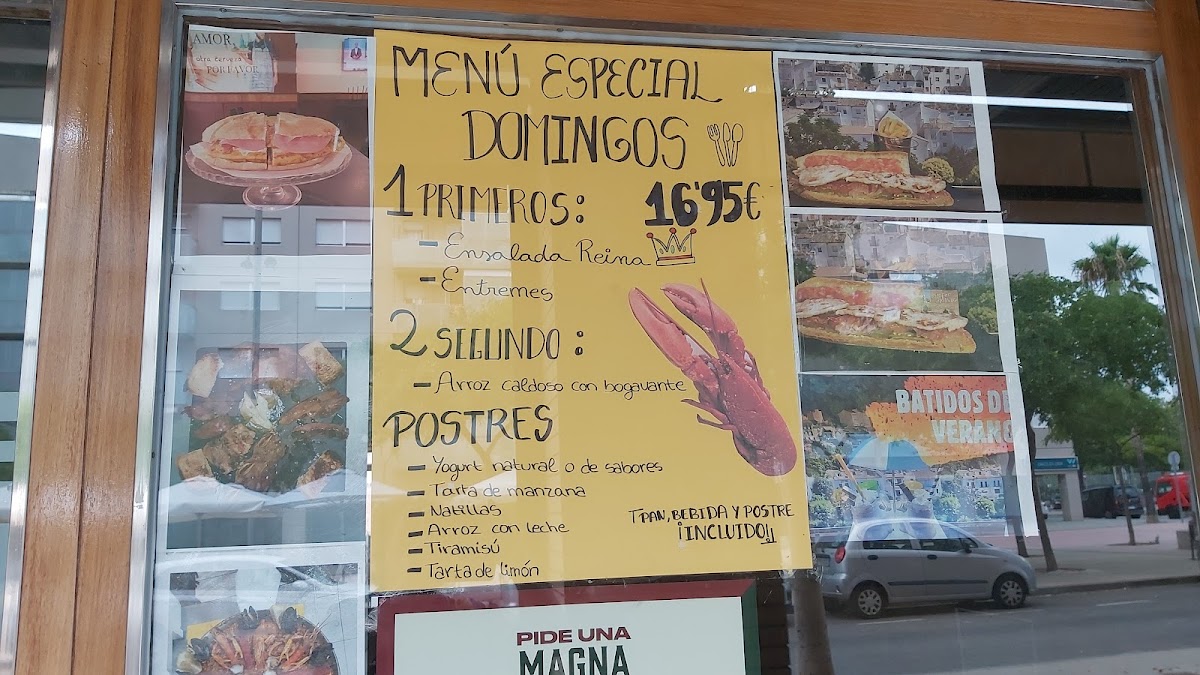 AMOR,
otra cerveza
POR FAVOR
MENÚ ESPECIAL
DOMINGOS
1 PRIMEROS: 16'95€
- Ensalada Reina
- Entremes
2 SEGUNDO:
- Arroz caldoso con bogavante
POSTRES
- Yogurt natural o de sabores
- Tarta de manzana
- Natillas
- Arroz con leche
- Tiramisú
- Tarta de limón
PAN, BEBIDA Y POSTRE
¡INCLUIDO!
BATIDOS DE
VERANO
PIDE UNA
MAGNA